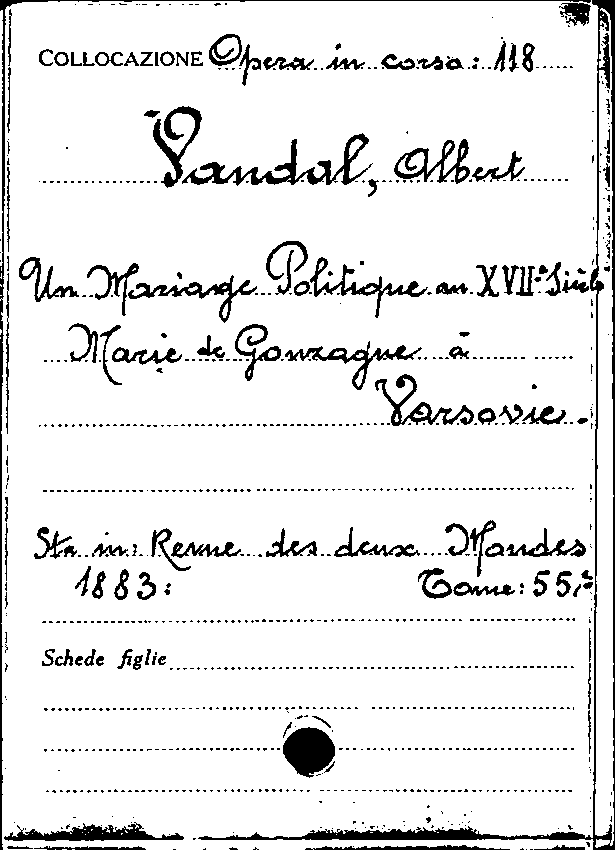 COLLOCAZIONE Opera in corso: 118
Vandal, Albert
Un Mariage Politique au XVIIe Siècle
Marie de Gonzague à
Varsovie.
Sta in: Revue des deux Mondes
1883: Tome: 55.e
Schede figlie